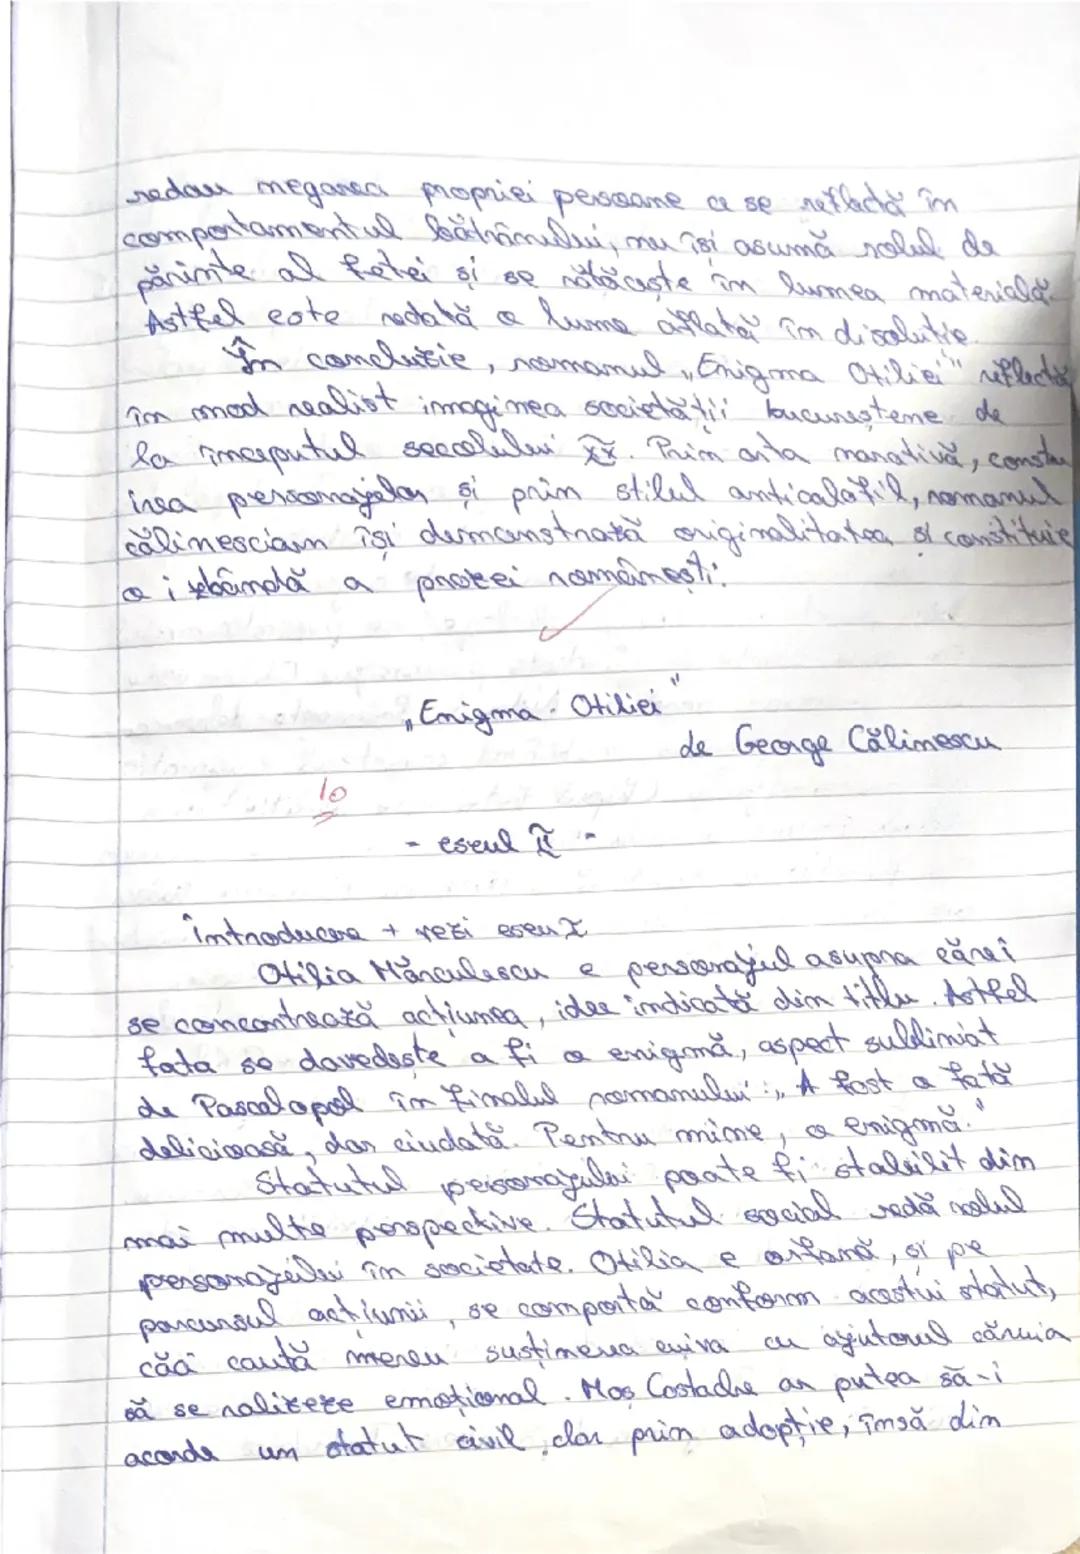 redau negarea propriei persoane ce se reflectă în
comportamentul bătrânului, nu își asumă rolul de
părinte al fetei și se rătăcește în lumea materială.
Astfel este redată o lume aflată în disoluție.
În concluzie, romanul „Enigma Otiliei" reflectă
în mod realist imaginea societății bucureștene de
la începutul secolului XX. Prin arta narativă, constru
irea personajelor și prin stilul anticalofil, romanul
călinescian își demonstrază originalitatea și constituie
o izbândă a prozei românești.
„Enigma Otiliei"
de George Călinescu
10
- eseul II -
introducere + vezi eseu I
Otilia Mărculescu e personajul asupra cărei
se concentrează acțiunea, idee indicată din titlu. Astfel
fata se dovedește a fi o enigmă, aspect subliniat
de Pascalopol în finalul romanului: „A fost o fată
delicioasă, dar ciudată. Pentru mine, o enigmă."
Statutul personajului poate fi stabilit din
mai multe perspective. Statutul social redă rolul
personajului în societate. Otilia e orfană, și pe
parcursul acțiunii, se comportă conform acestui statut,
căci caută mereu susținerea cuiva cu ajutorul căruia
să se
emoțional. Moș Costache ar putea să-i
acorde un statut civil, dar prin adopție, însă din